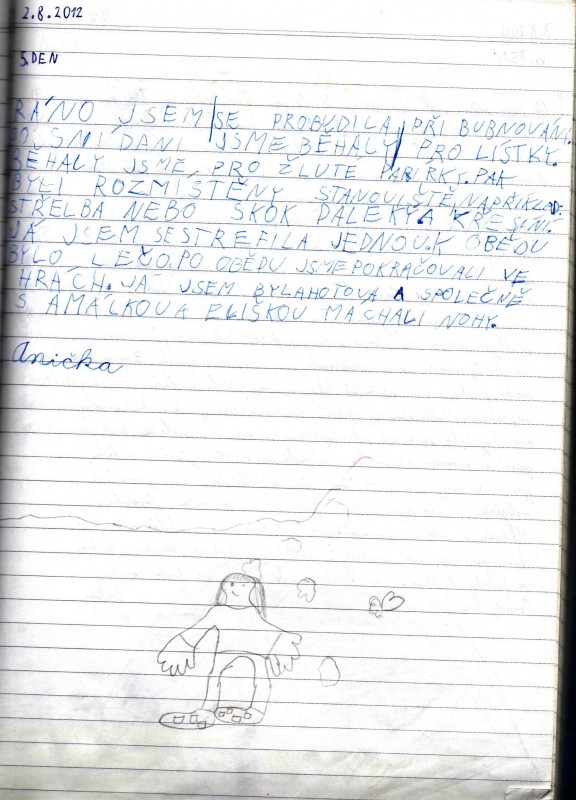 2.8.2012
5.DEN
RÁNO JSEM SE PROBUDILA PŘI BUBNOVÁNÍ.
PO SNÍDANI JSME BĚHALY PRO LÍSTKY.
BĚHALY JSME, PRO ŽLUTÉ PAPÍRKY. PAK
BYLI ROZMÍSTĚNY STANOVIŠTĚ, NAPŘÍKLAD:
STŘELBA NEBO SKOK DALEKÝ A KŘESENÍ.
JÁ JSEM SE STREFILA JEDNOU. K OBĚDU
BYLO LEČO. PO OBĚDU JSME POKRAČOVALI VE
HRÁCH. JÁ JSEM BYLA HOTOVA A SPOLEČNĚ
S AMÁLKOU A ELIŠKOU MÁCHALI NOHY.
Anička